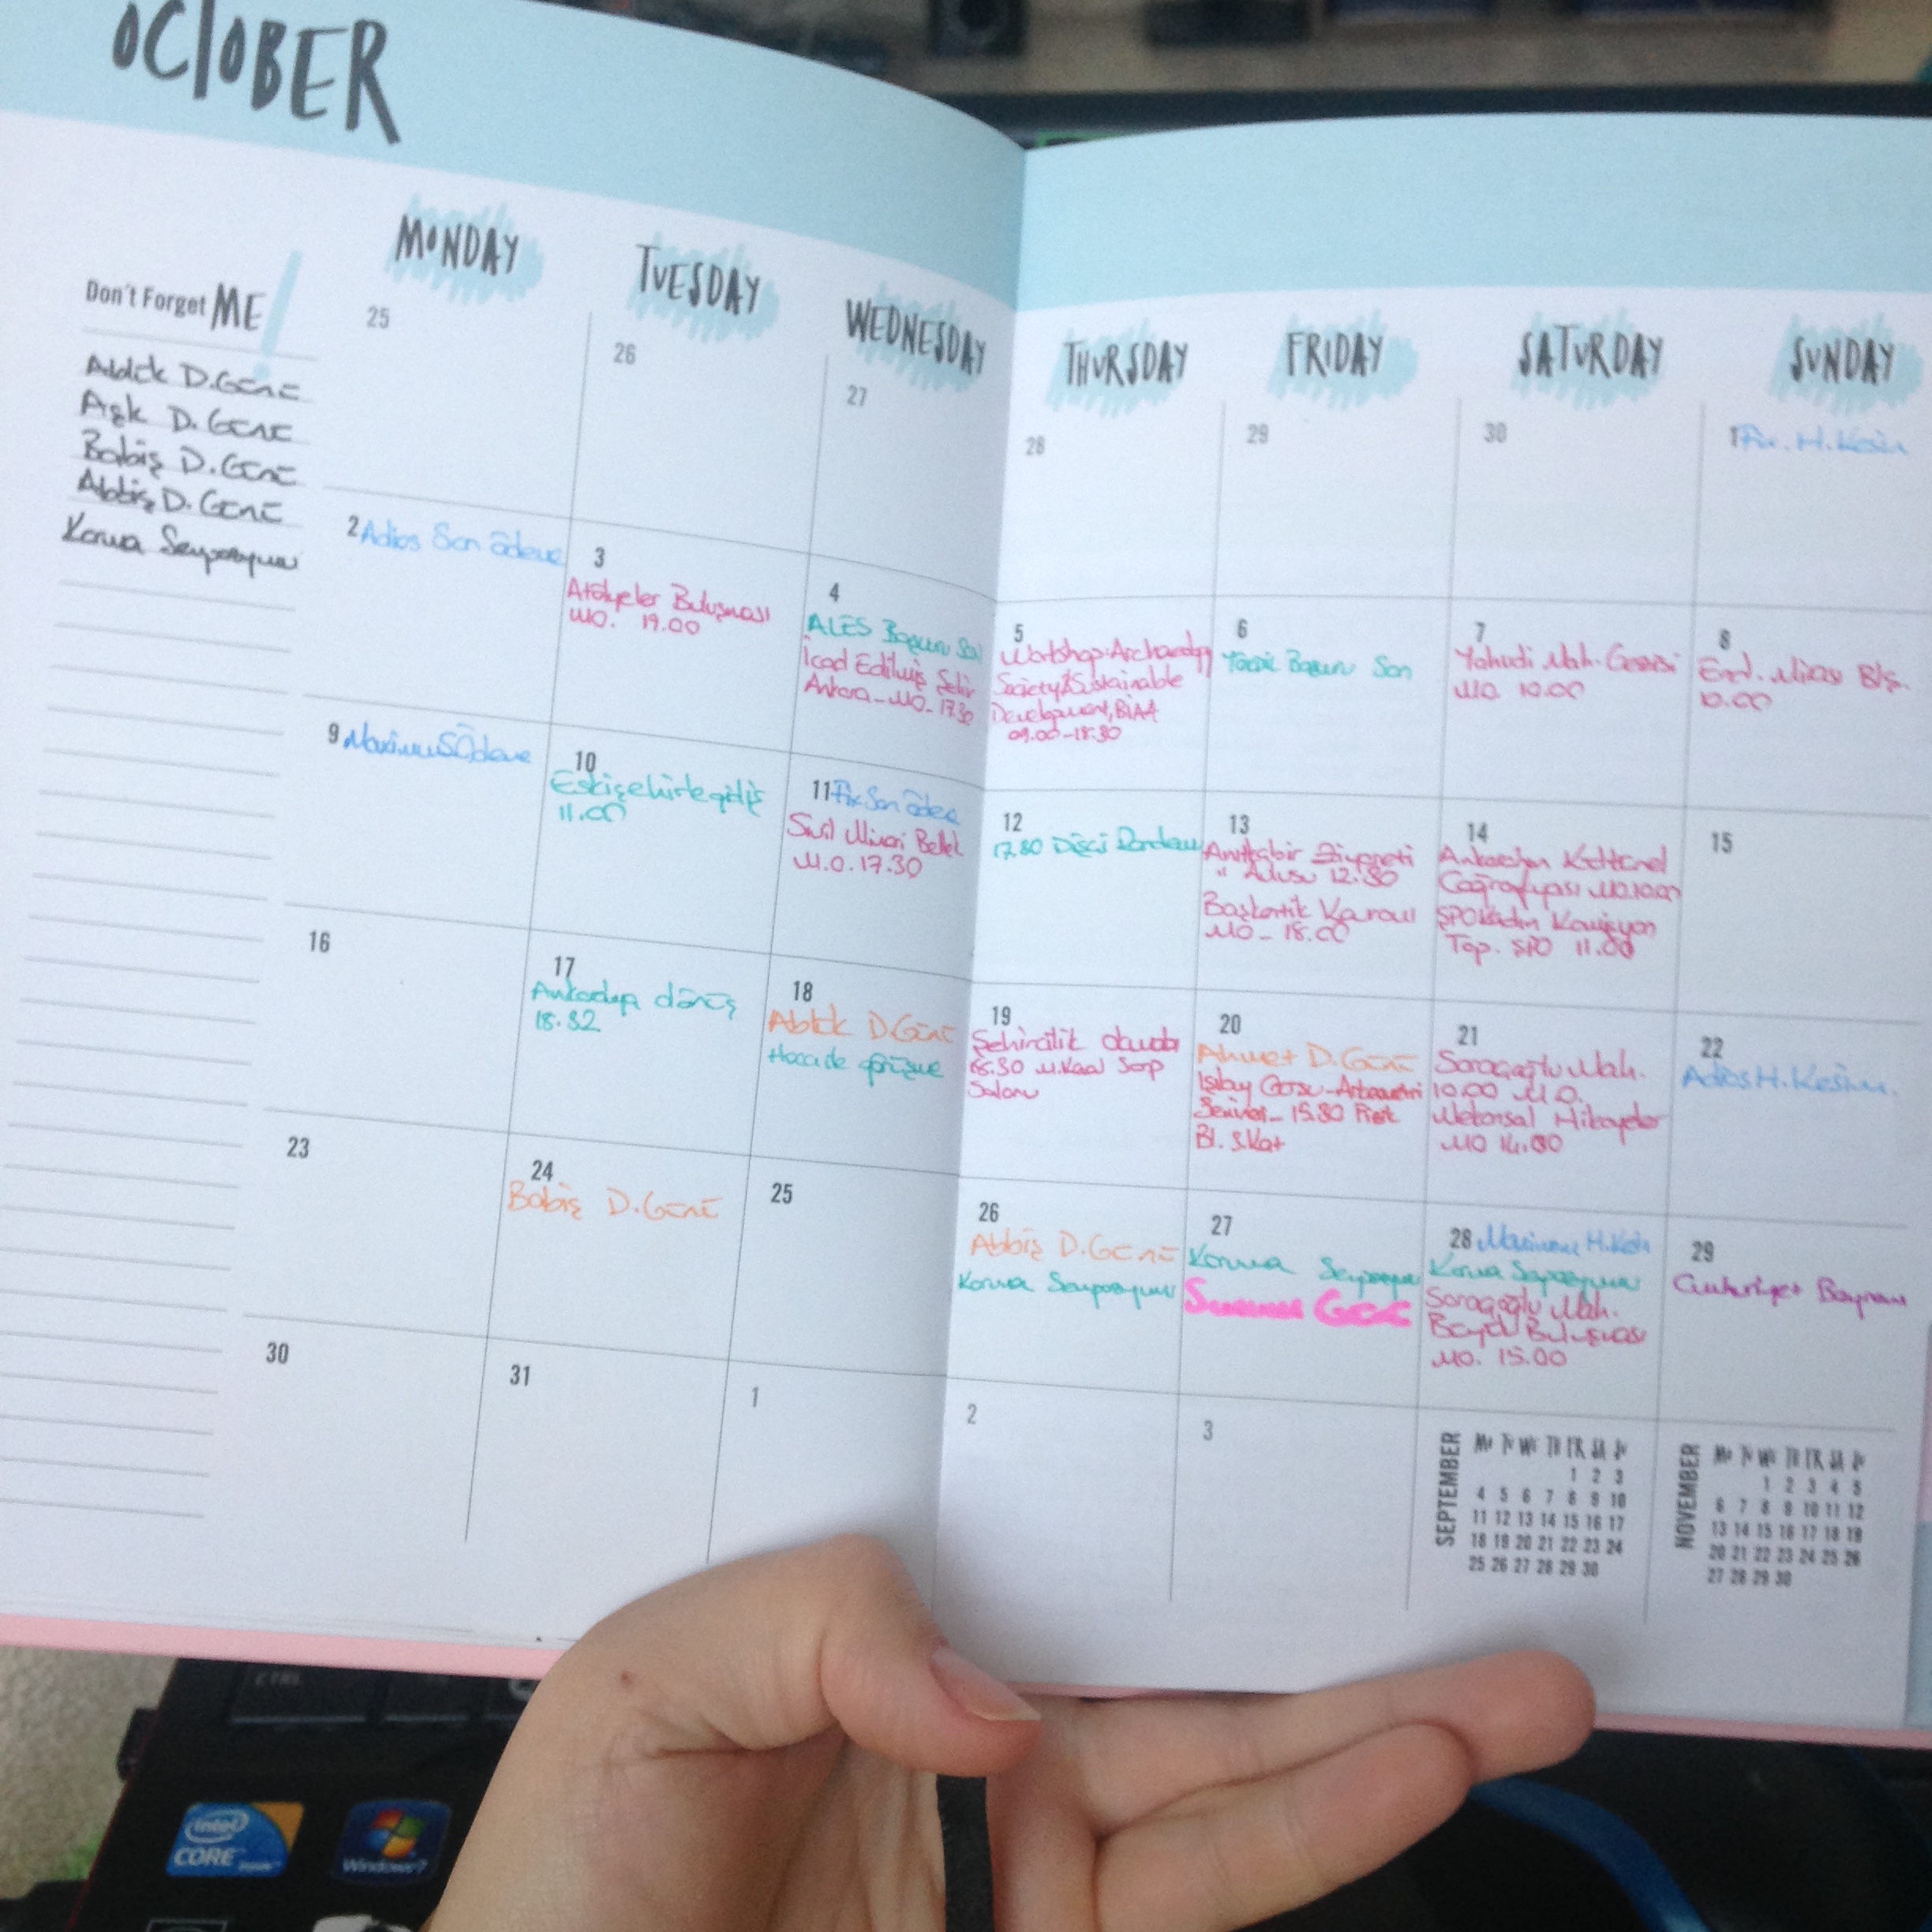 OCTOBER
MONDAY TUESDAY WEDNESDAY THURSDAY FRIDAY SATURDAY SUNDAY
Don't Forget ME!
Ablık D.Günü
Aşk D.Günü
Babiş D.Günü
Abbiş D.Günü
Koruma Sempozyumu
25
26
27
28
29
30
1 H.Kesim
2 Adios Son Ödeme
3
Atölyeler Buluşması
MO. 19.00
4
ALES Başvuru Son
İcad Edilmiş Şehir
Ankara - MO - 17.30
5
Workshop: Archaeology
Society & Sustainable
Development, BIAA
09.00-18.30
6
Başvuru Son
7
Yahudi Mah. Gezisi
MO 10.00
8
End. Mirası Blş.
10.00
9 Maximum S Ödeme
10
Eskişehir'e gidiş
11.00
11 Son Ödeme
Sivil Mimari Bellek
M.O. 17.30
12
17.30 Dişçi Randevu
13
Anıtkabir Ziyareti
" Avlusu 12.30
Başkentlik Kararı
MO - 18.00
14
Ankara'nın Kültürel
Coğrafyası MO 10.00
ŞPO Kadın Komisyon
Top. ŞPO 11.00
15
16
17
Ankara'ya dönüş
18.32
18
Ablık D.Günü
Hoca ile görüşme
19
Şehircilik
Salonu
20
Ahmet D.Günü
15.30
21
Saraçoğlu Mah.
10.00 MO.
Mekansal Hikayeler
MO 14.00
22
Adios H.Kesim.
23
24
Babiş D.Günü
25
26
Abbiş D.Günü
Koruma Sempozyumu
27
Koruma Sempozyumu
28 Maximum H.Kesim
Koruma Sempozyumu
Saraçoğlu Mah.
Buluşması
MO. 15.00
29
Cumhuriyet Bayramı
30
31
1
2
3
SEPTEMBER
Mo Tu We Th Fr Sa Su
1 2 3
4 5 6 7 8 9 10
11 12 13 14 15 16 17
18 19 20 21 22 23 24
25 26 27 28 29 30
NOVEMBER
Mo Tu We Th Fr Sa Su
1 2 3 4 5
6 7 8 9 10 11 12
13 14 15 16 17 18 19
20 21 22 23 24 25 26
27 28 29 30
CTRL
intel
CORE
inside
Windows 7